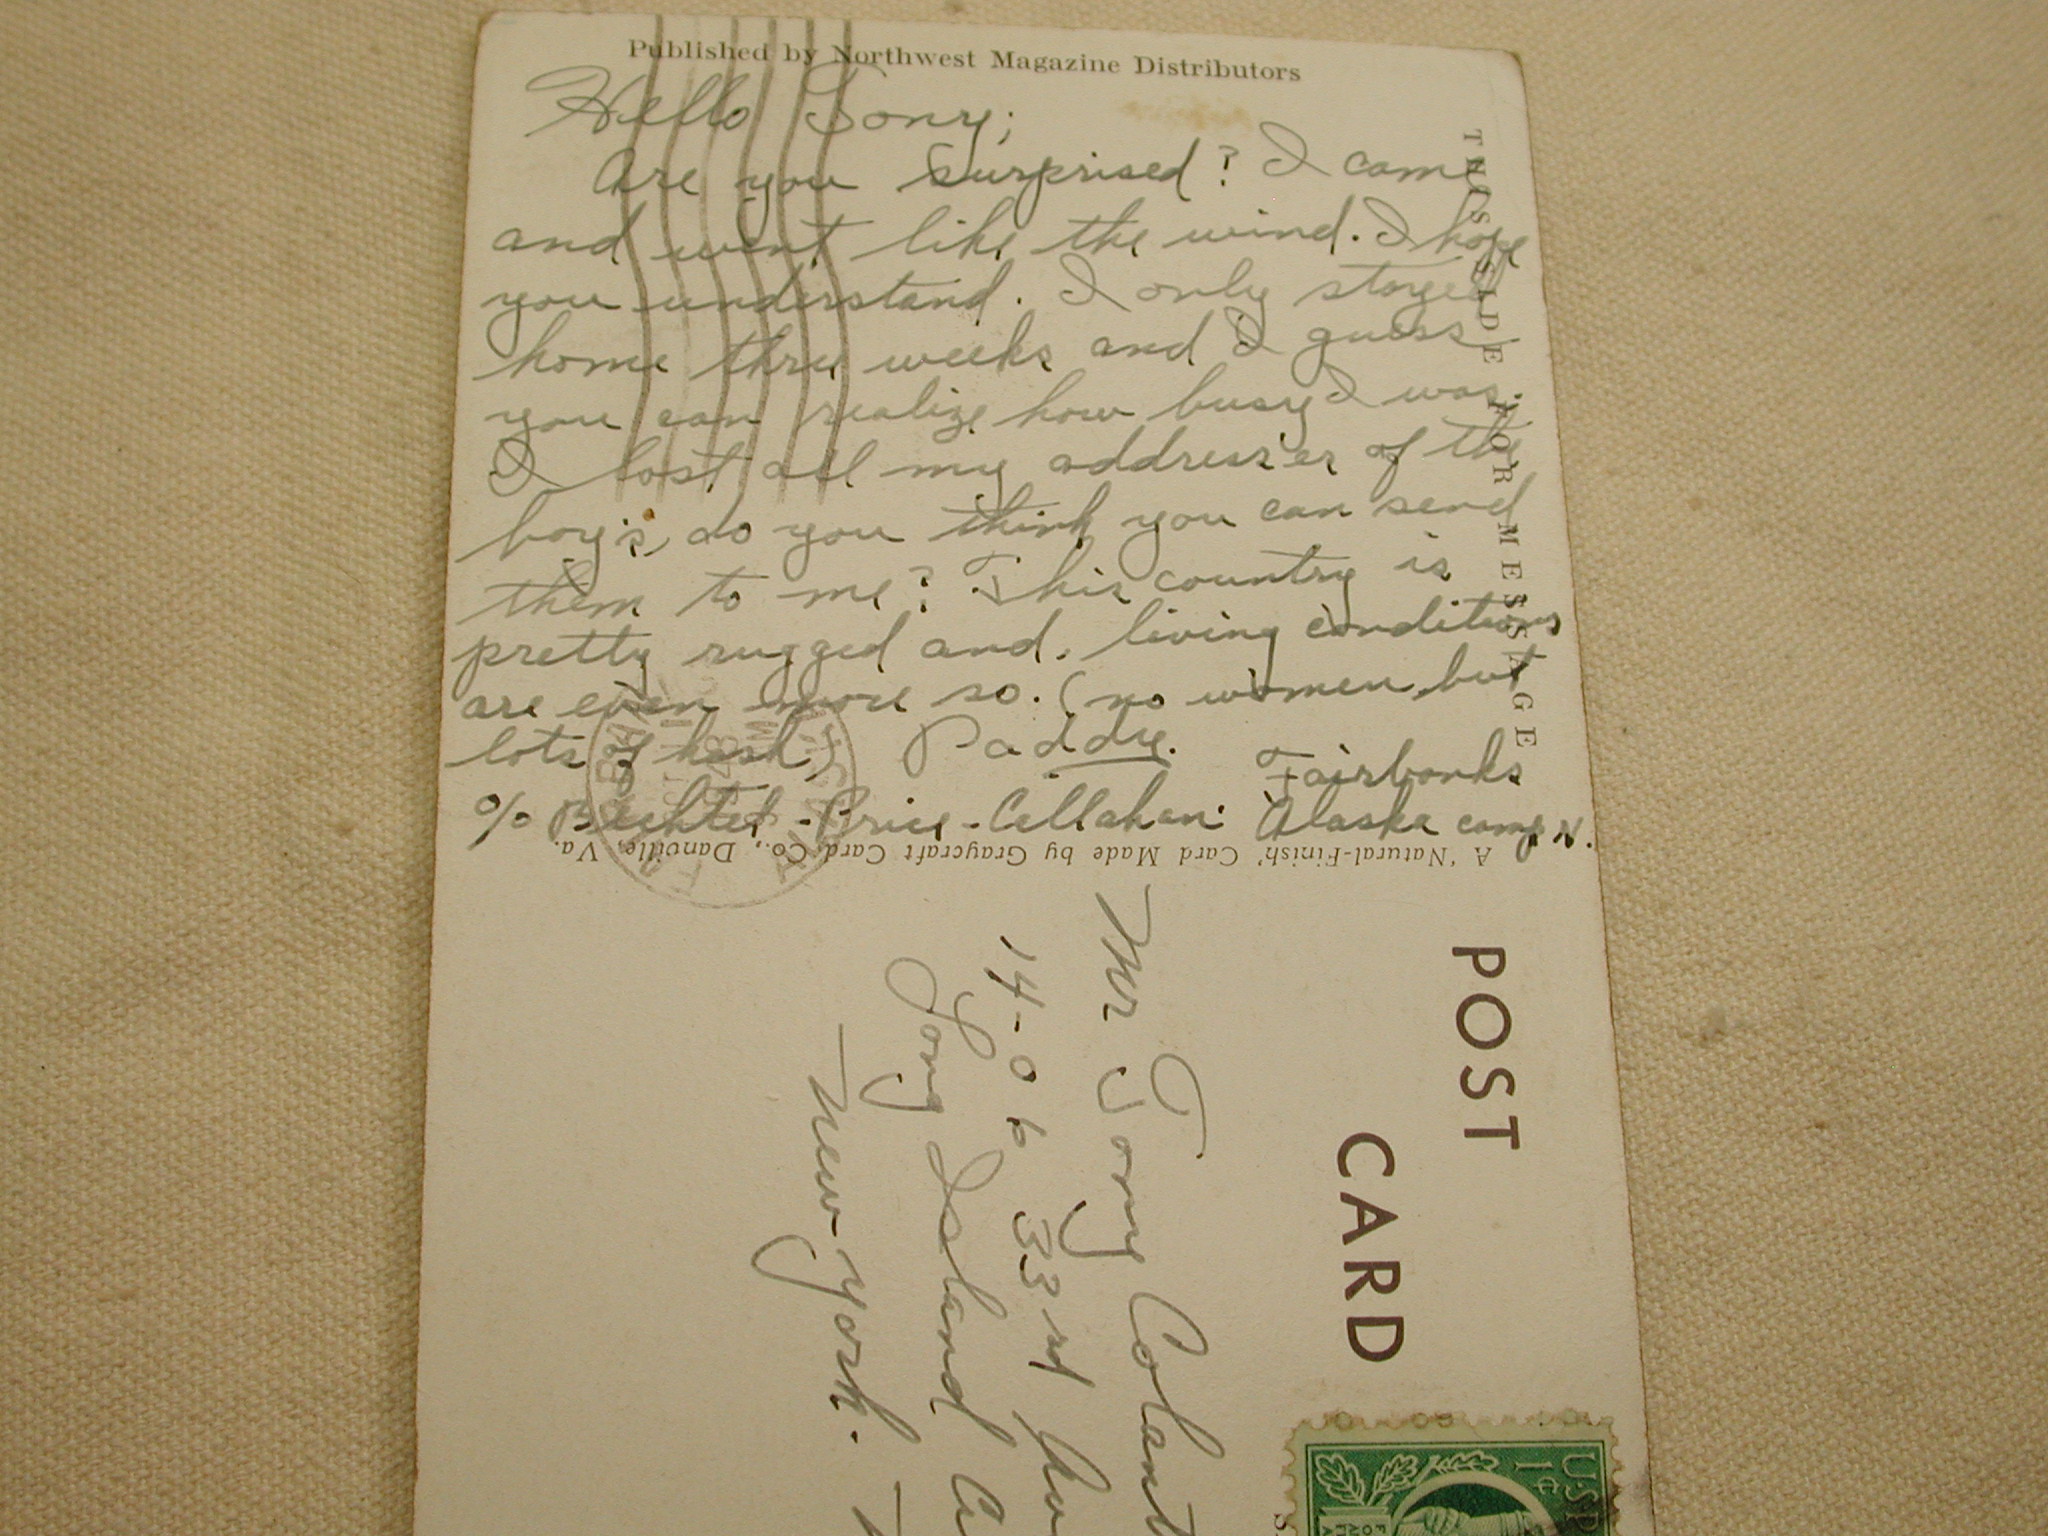 Published by Northwest Magazine Distributors
Hello Tony;
Are you surprised? I came
and went like the wind. I hope
you understand. I only stayed
home three weeks and I guess
you can realize how busy I was.
I lost all my addresses of the
boy's, do you think you can send
them to me? This country is
pretty rugged and. living conditions
are even more so. (no women, but
lots of hash) Paddy.
Fairbanks
c/o Bechtel-Price-Callahan Alaska camp N.
THIS SIDE FOR MESSAGE
A 'Natural-Finish' Card Made by Graycraft Card Co., Danville, Va.
POST CARD
Mr Tony Colant
14-06 33rd
Long Island
New York.
U.S.P
1c